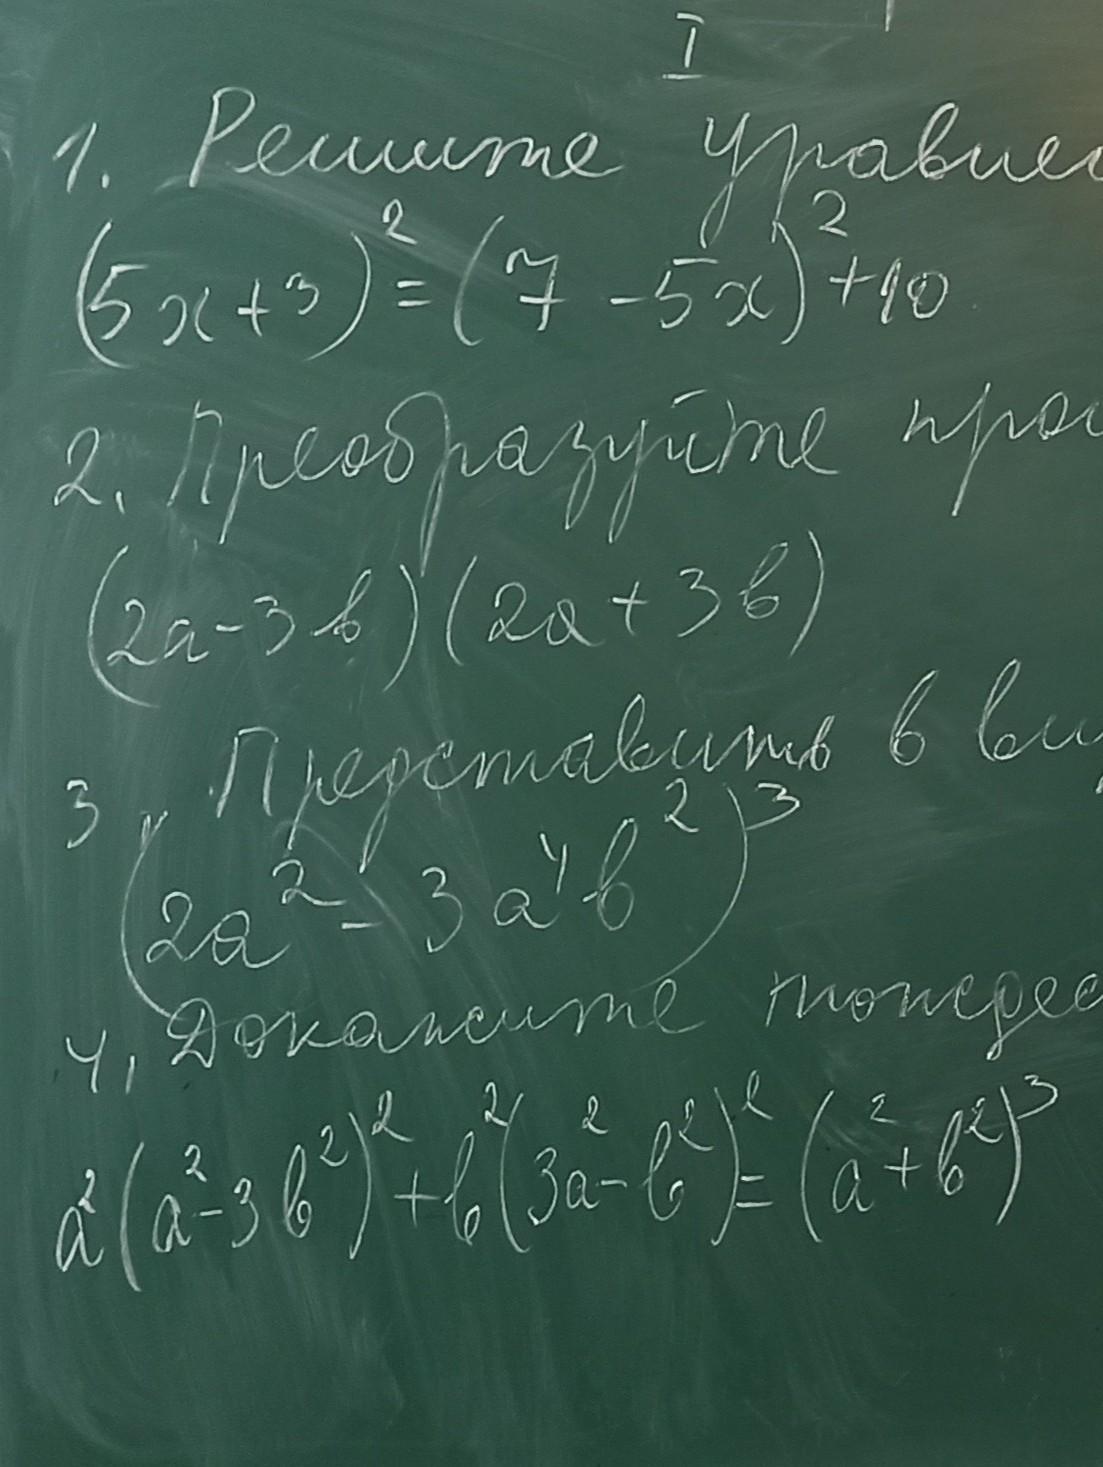 I
1. Решите уравнен
(5x+3)² = (7 -5x)² +10
2. Преобразуйте прои
(2a-3b)(2a+3b)
3. Представить в ви
(2a² - 3a⁴b²)³
4. Докажите тождес
a²(a²-3b²)² + b²(3a²-b²)² = (a²+b²)³